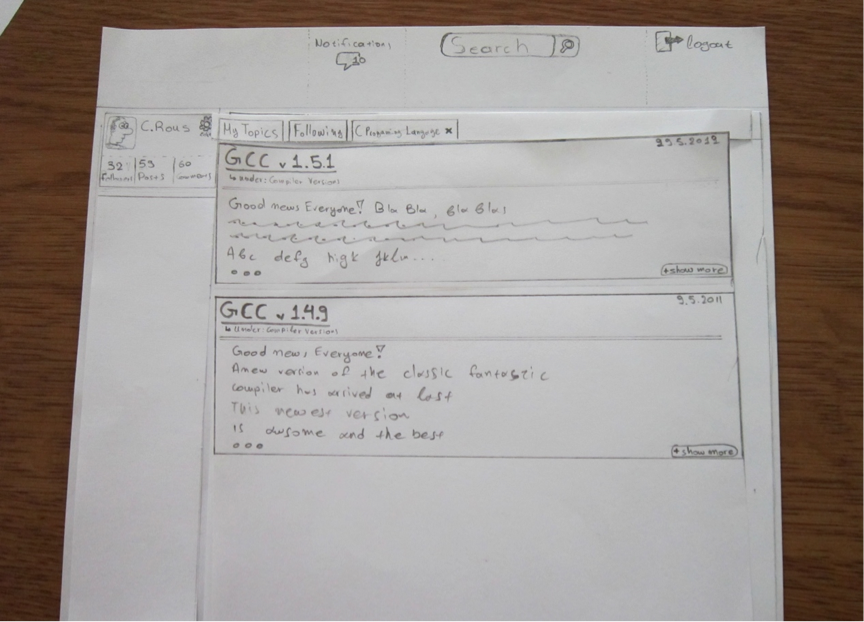 Notifications
10
Search
logout
C.Rous
32 53 60
Posts
My Topics Following C Programing Language x
GCC v 1.5.1
Under: Compiler Versions
Good news Everyone! Bla Bla, Bla Bla!
Abc defg
...
+show more
GCC v 1.4.9
9.5.2011
Under: Compiler Versions
Good news Everyone!
A new version of the classic fantastic
compiler has arrived at last
This newest version
is awsome and the best
...
+show more